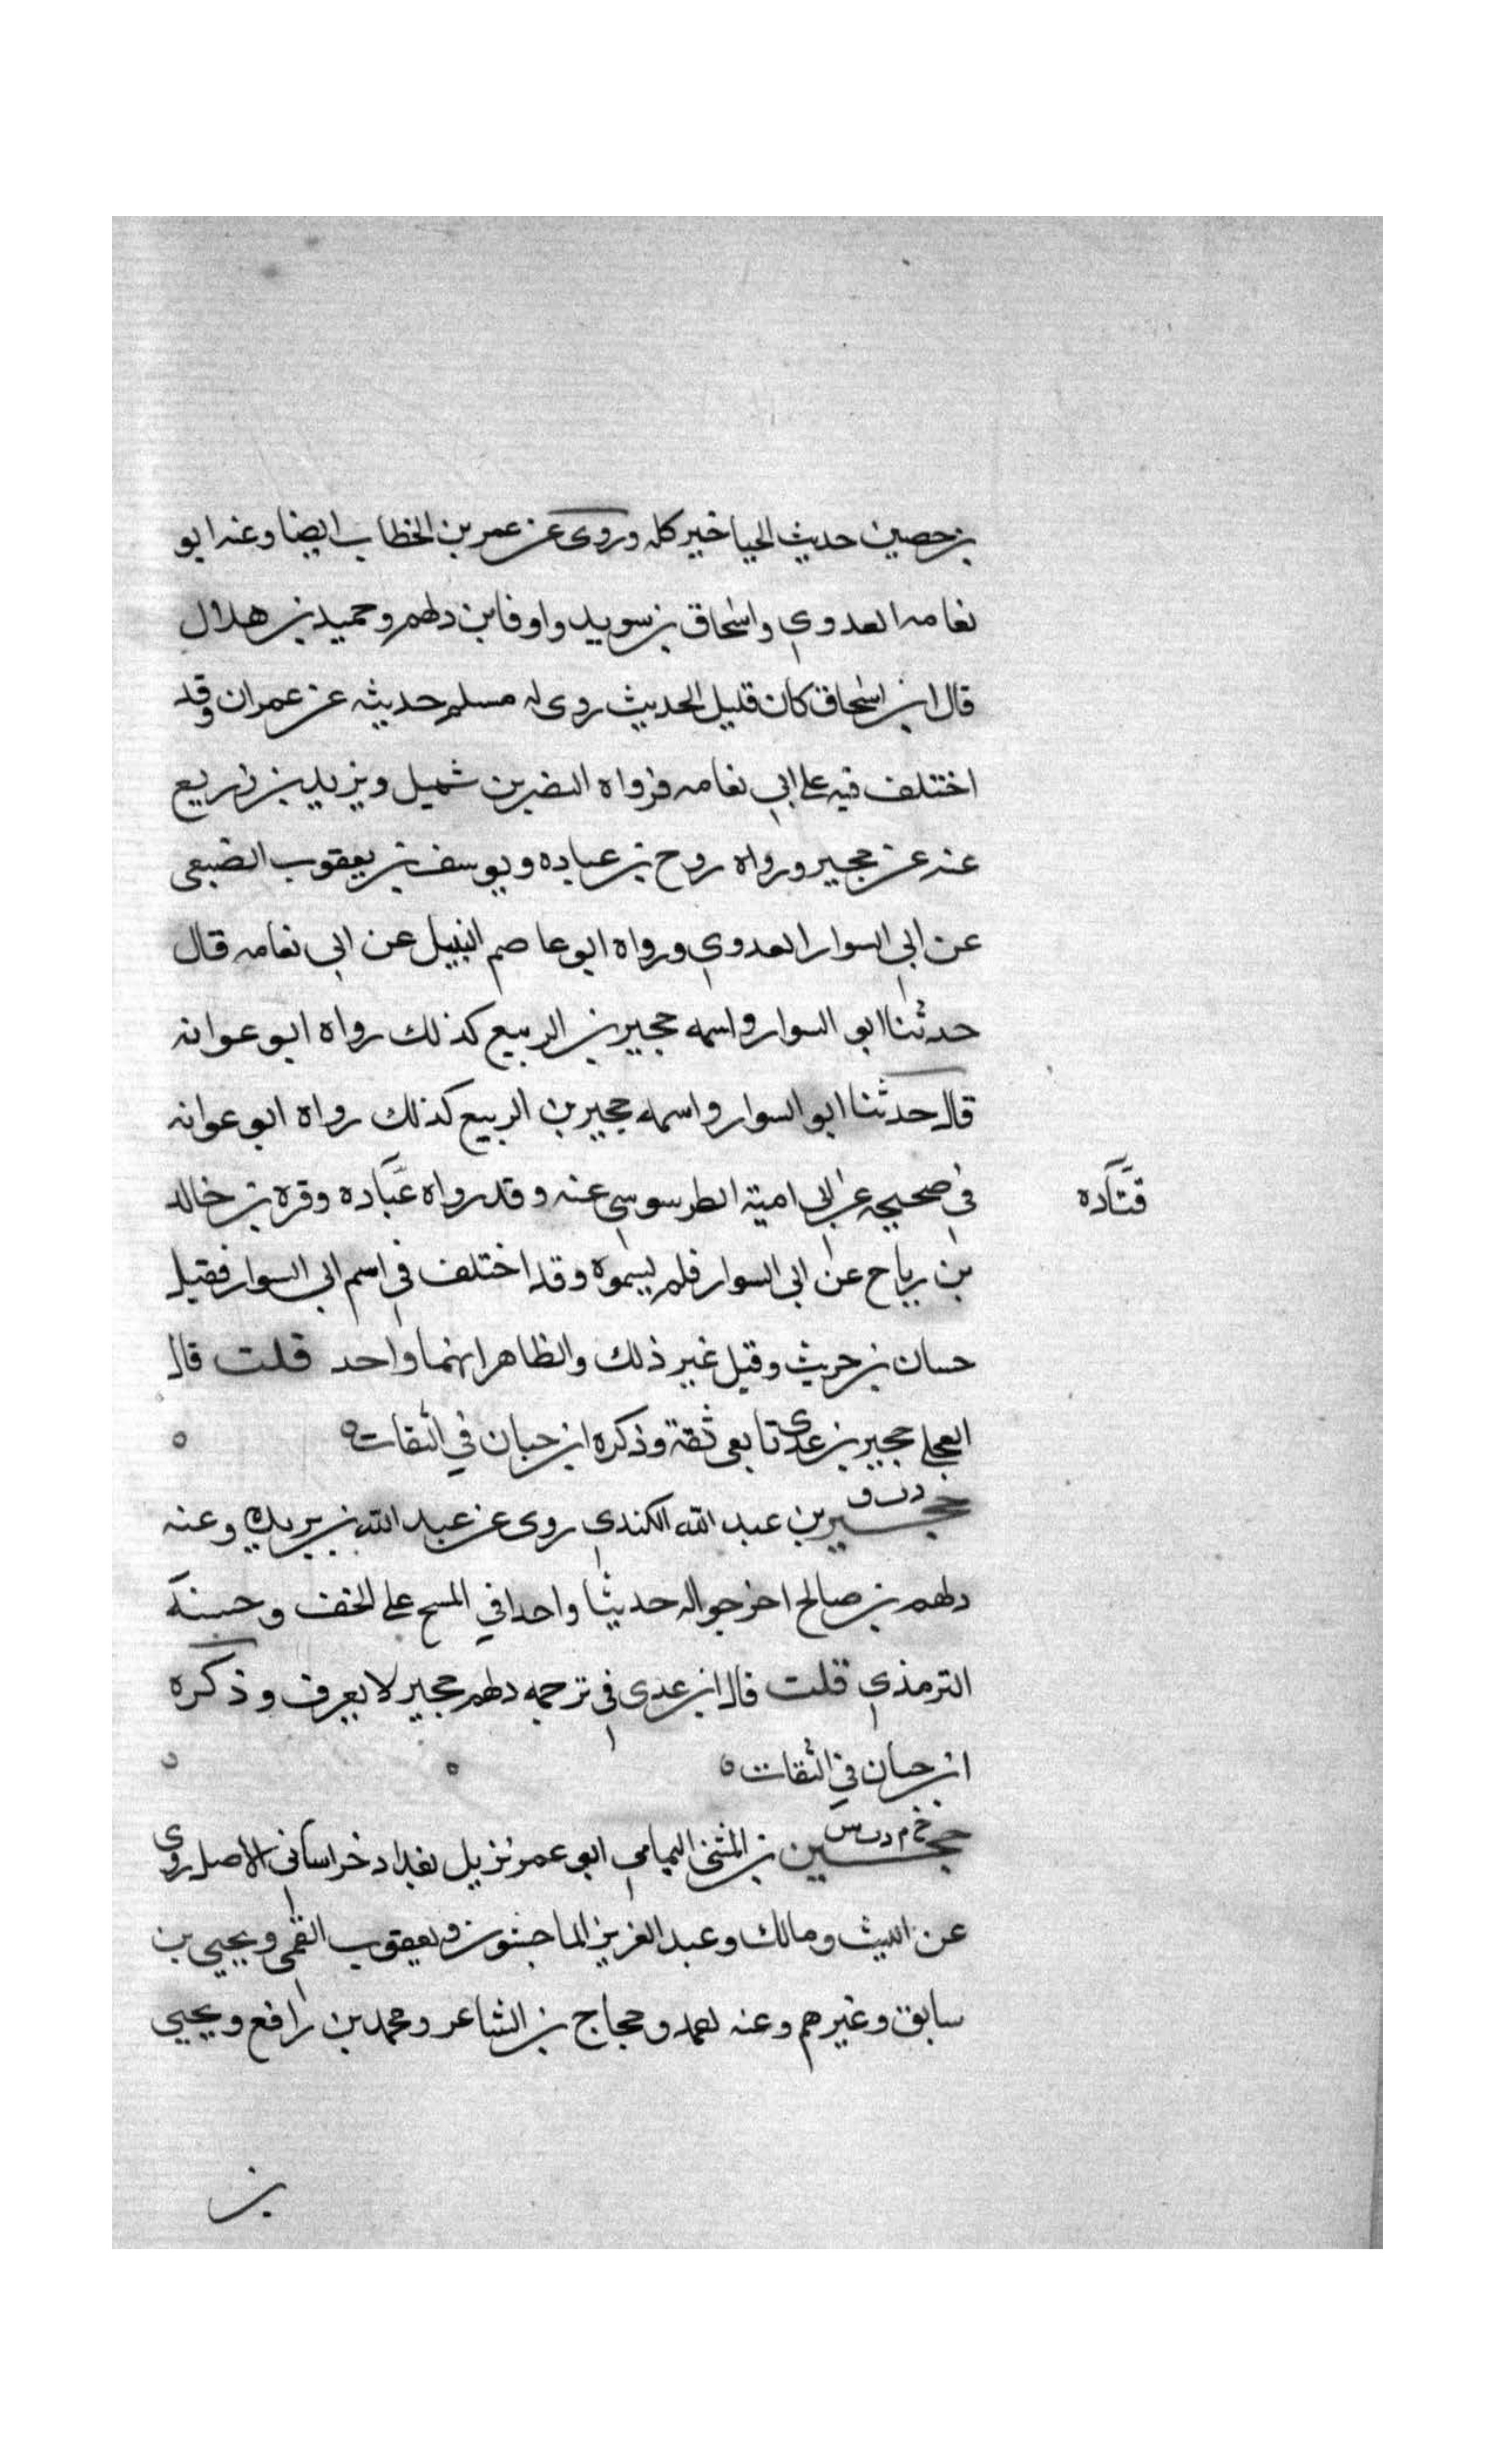 بن حصين حديث الحيا خير كله وروى عن عمر بن الخطاب ايضا وعنه ابو
نعامه العدوي واسحاق بن سويد واوفا بن دلهم وحميد بن هلال
قال ابن اسحاق كان قليل الحديث روى له مسلم حديثه عن عمران وقد
اختلف فيه على ابي نعامه فرواه النضر بن شميل ويزيد بن زريع
عنه عن حجير ورواه روح بن عباده ويوسف بن يعقوب الضبعي
عن ابي السوار العدوي ورواه ابو عاصم النبيل عن ابي نعامه قال
حدثنا ابو السوار واسمه حجير بن الربيع كذلك رواه ابو عوانه
قال حدثنا ابو السوار واسمه حجير بن الربيع كذلك رواه ابو عوانه
في صحيحه عن ابي امية الطرسوسي عنه وقد رواه عباده وقره بن خالد
قتاده
بن رباح عن ابي السوار فلم يسموه وقد اختلف في اسم ابي السوار فقيل
حسان بن حريث وقيل غير ذلك والظاهر انهما واحد قلت قال
العجلي حجير بن عدي تابعي ثقة وذكره ابن حبان في الثقات ه
د ت ق
حجير بن عبد الله الكندي روى عن عبد الله بن بريدة وعنه
دلهم بن صالح اخرجوا له حديثا واحدا في المسح على الخف وحسنه
الترمذي قلت قال ابن عدي في ترجمه دلهم حجير لا يعرف وذكره
ابن حبان في الثقات ه
خ م د ت س
حجين بن المثنى اليمامي ابو عمر نزيل بغداد خراساني الاصل روى
عن الليث ومالك وعبد العزيز الماجشون ويعقوب القمي ويحيى بن
سابق وغيرهم وعنه احمد وحجاج بن الشاعر ومحمد بن رافع ويحيى
بن